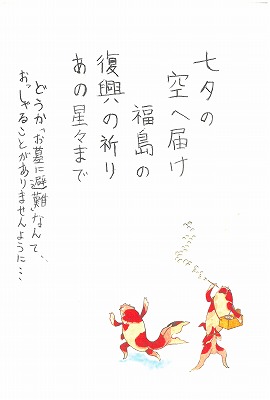 七夕の
空へ届け
福島の
復興の祈り
あの星々まで
どうか"お墓に避難"なんて、
おっしゃることがありませんように…